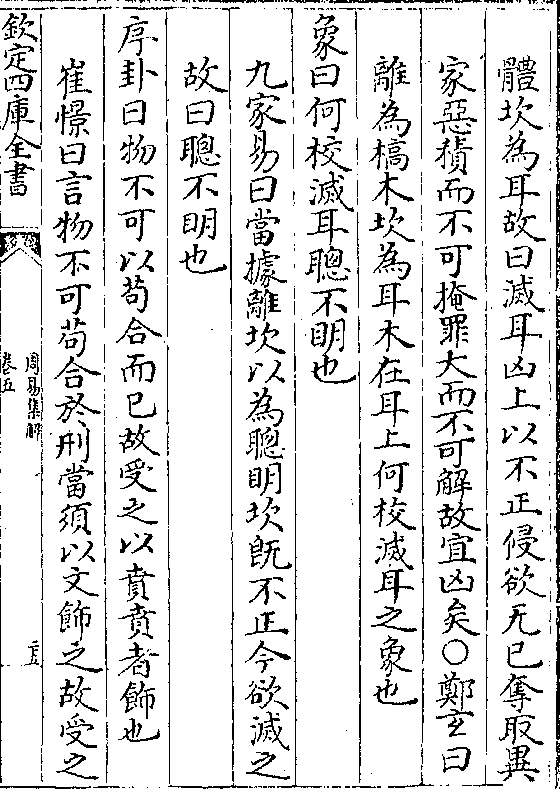 體坎為耳故曰滅耳凶上以不正侵欲无已奪取異
家惡積而不可掩罪大而不可解故宜凶矣○鄭玄曰
離為槁木坎為耳木在耳上何校滅耳之象也
象曰何校滅耳聰不明也
九家易曰當據離坎以為聰明坎既不正今欲滅之
故曰聰不明也
序卦曰物不可以苟合而已故受之以賁賁者飾也
崔憬曰言物不可苟合於刑當須以文飾之故受之
欽定四庫全書
周易集解
卷五
二五